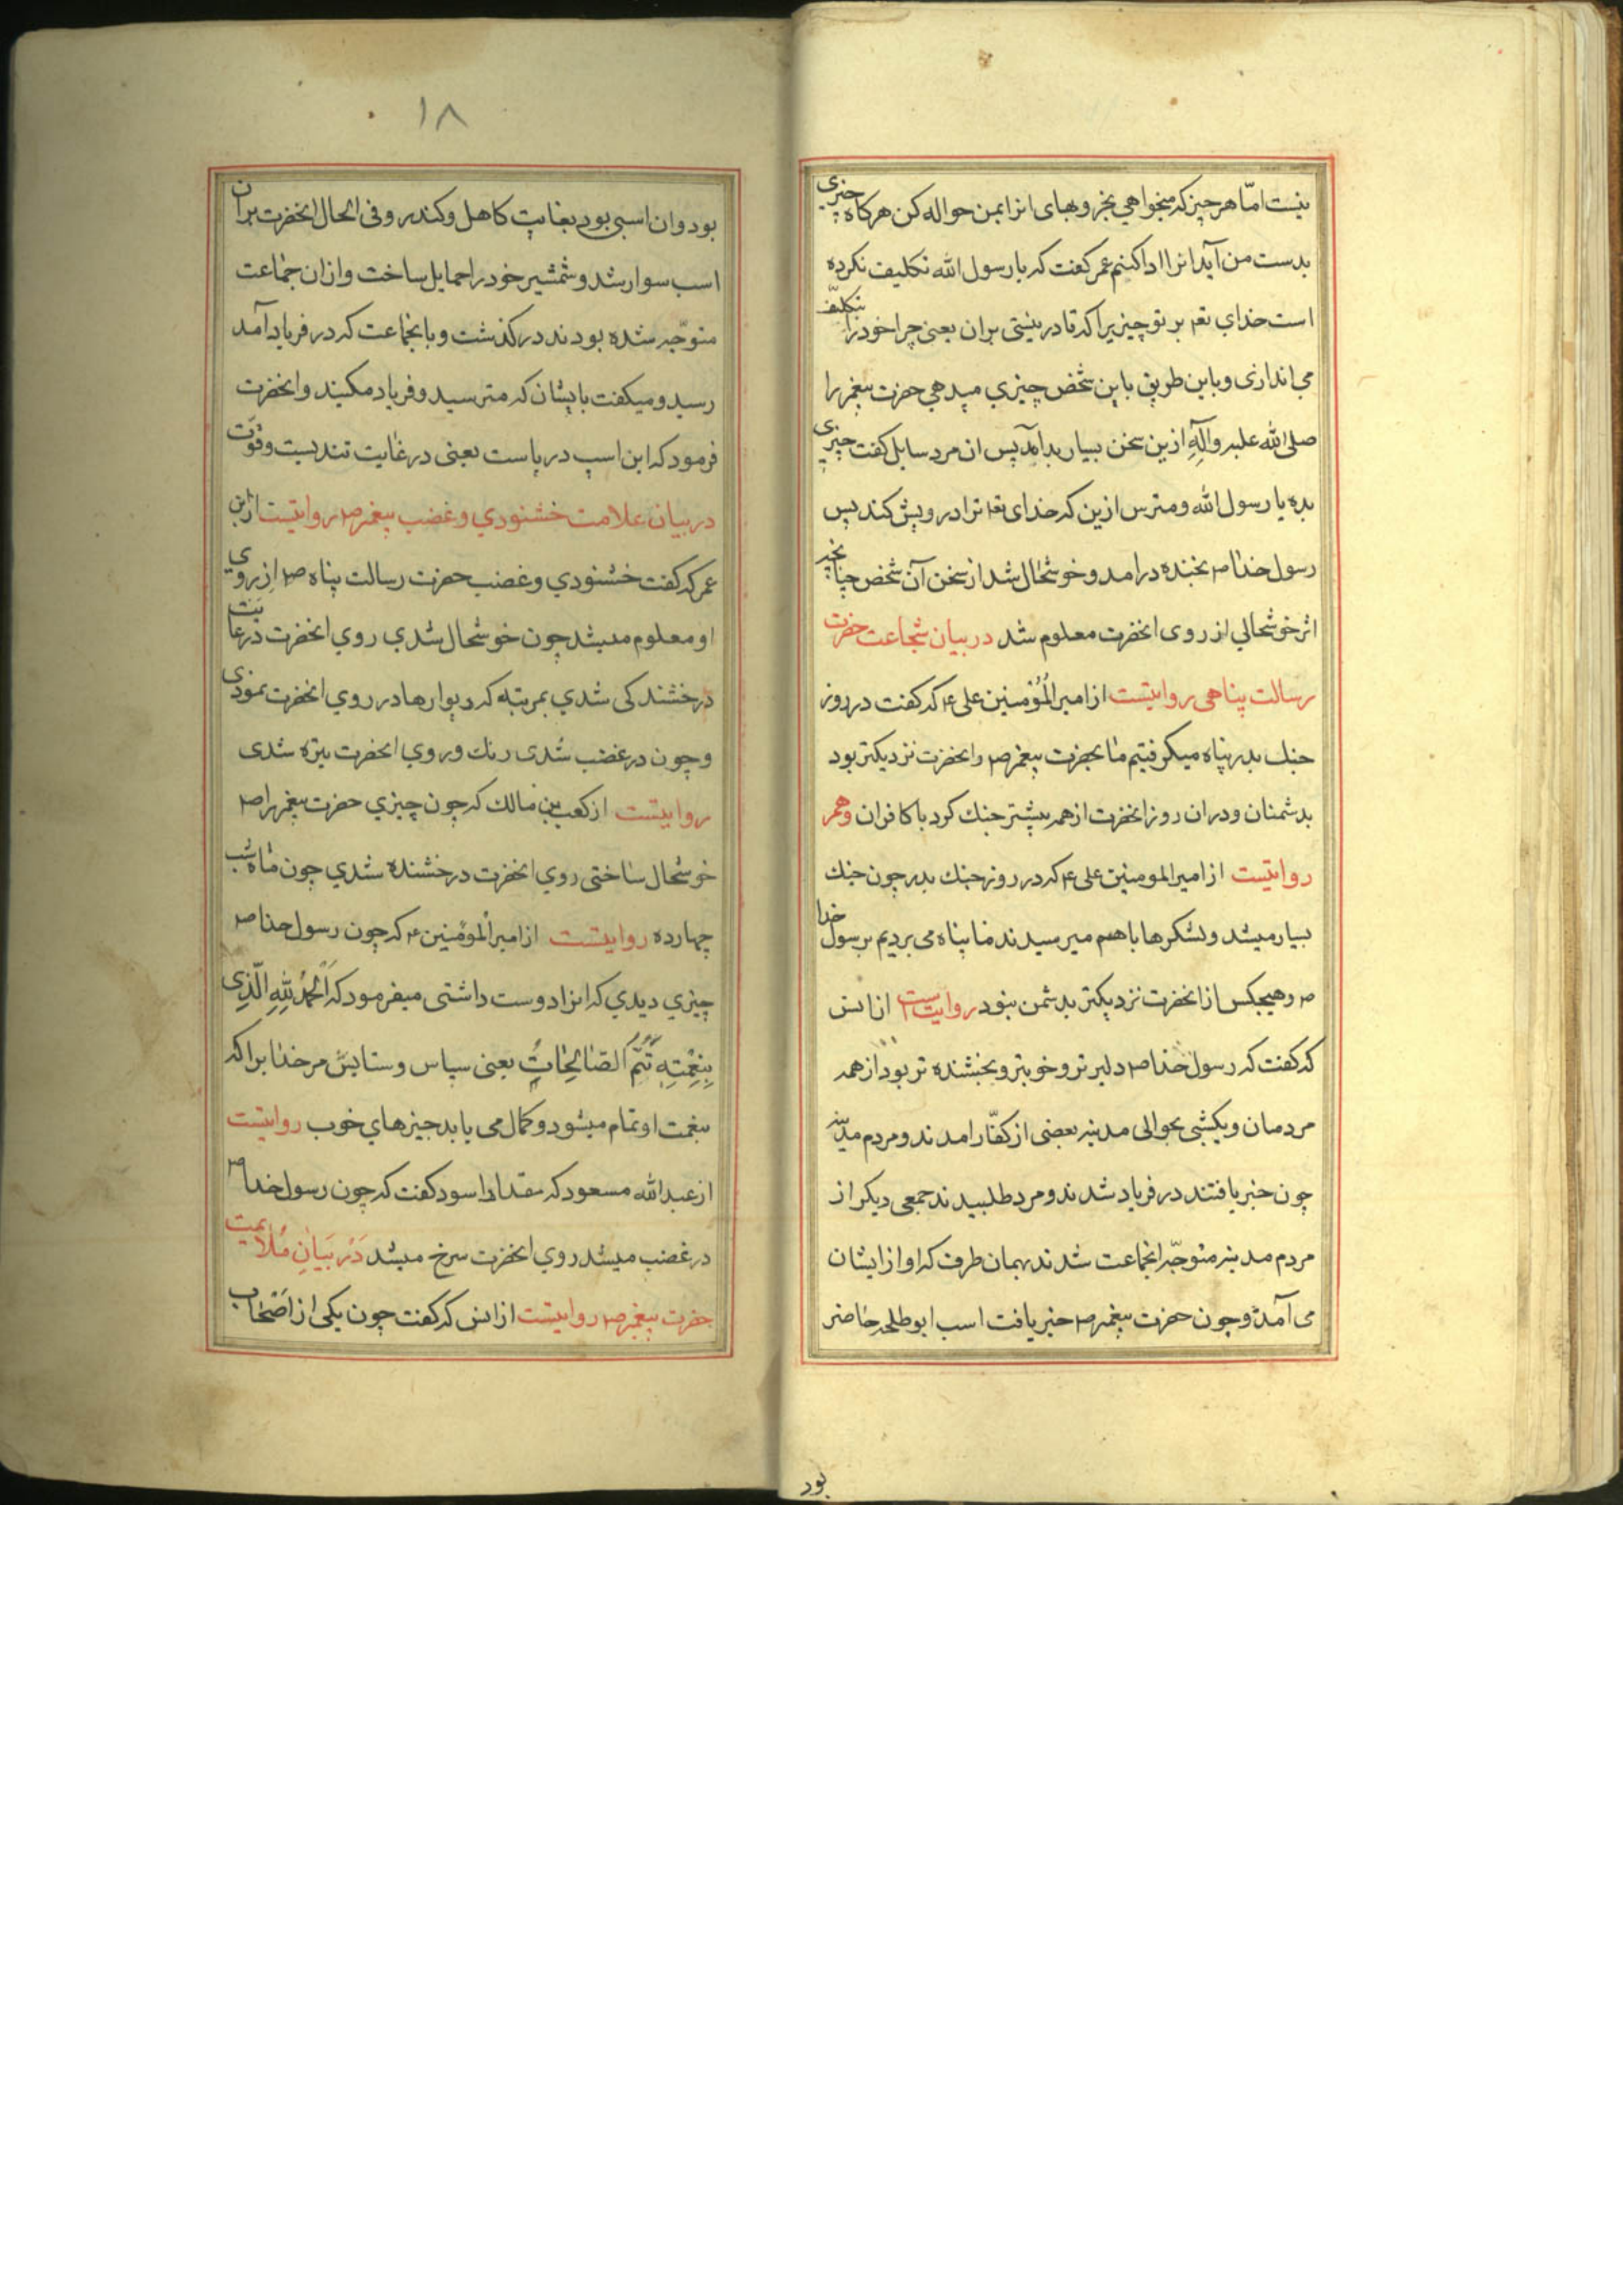 نیست امّا هر چیز که میخواهی بخر و بهای انرا بمن حواله کن هر کاه چیزی
بدست من آید انرا ادا کنیم عمر کفت که یا رسول الله تکلیف نکرده
است خدای تعم بر تو چیزیرا که قادر نیستی بران یعنی چرا خود را بتکلیف
می اندازی و باین طریق باین شخص چیزی میدهی حضرت پیغمبر را
صلی الله علیه وآلِهِ ازین سخن بسیار بد آمد پس ان مرد سایل کفت چیزی
بده یا رسول الله و مترس ازین که خدای تعم ترا درویش کند پس
رسول خدا ص بخنده درامد و خوشحال شد از سخن آن شخص چنانچه
اثر خوشحالی از روی انحضرت معلوم شد در بیان شجاعت حضرت
رسالت پناهی روایتست از امیر المُؤمنین علی ع که کفت در روز
جنك بدر پناه میکرفتیم ما بحضرت پیغمبر ص وانحضرت نزدیکتر بود
بدشمنان ودران روز انحضرت از همه بیشتر جنك کرد با کافران وهم
روایتست از امیر المومنین علی ع که در روز جنك بدر چون جنك
بسیار میشد ولشکرها باهم میرسیدند ما پناه می بردیم برسول خدا
ص وهیچکس از انحضرت نزدیکتر بدشمن نبود روایتست از انس
که کفت که رسول خدا ص دلیر تر و خوبتر و بخشنده تر بود از همه
مردمان ویکشبی بحوالی مدینه بعضی از کفّار امدند ومردم مدینه
چون خبر یافتند در فریاد شدند ومرد طلبیدند جمعی دیکر از
مردم مدینه متوجّه انجماعت شدند بهمان طرف که اواز ایشان
می آمد وچون حضرت پیغمبر ص خبر یافت اسب ابو طلحه حاضر
بود
١٨
بود وان اسبی بود بغایت کاهل وکندرو وفی الحال انحضرت بران
اسب سوار شد وشمشیر خود را حمایل ساخت وازان جماعت
متوجّه شده بودند در کذشت وبانجماعت که در فریاد آمد
رسید ومیکفت بایشان که مترسید وفریاد مکنید وانحضرت
فرمود که این اسب دریاست یعنی در غایت تندیست وقوّت
در بیان علامت خشنودی وغضب پیغمبر ص روایتست از ابن
عمر که کفت خشنودی وغضب حضرت رسالت پناه ص از روی
او معلوم میشد چون خوشحال شدی روی انحضرت در غایت
درخشندکی شدی بمرتبه که دیوارها در روی انحضرت بنمودی
وچون در غضب شدی رنك وروی انحضرت تیره شدی
روایتست از کعب بن مالك که چون چیزی حضرت پیغمبر را ص
خوشحال ساختی روی انحضرت درخشنده شدی چون ماه شب
چهارده روایتست از امیر المؤمنین ع که چون رسول خدا ص
چیزی دیدی که انرا دوست داشتی میفرمود که اَلْحَمْدُ لِلّٰهِ الَّذِی
بِنِعْمَتِهِ تَتِمُّ الصَّالِحَاتُ یعنی سپاس وستایش مر خدایرا که
بنعمت او تمام میشود وکمال می یابد چیزهای خوب روایتست
از عبد الله مسعود که مقداد اسود کفت که چون رسول خدا ص
در غضب میشد روی انحضرت سرخ میشد دَر بَیانِ مُلایمت
حضرت پیغمبر ص روایتست از انس که کفت چون یکی از اصحاب